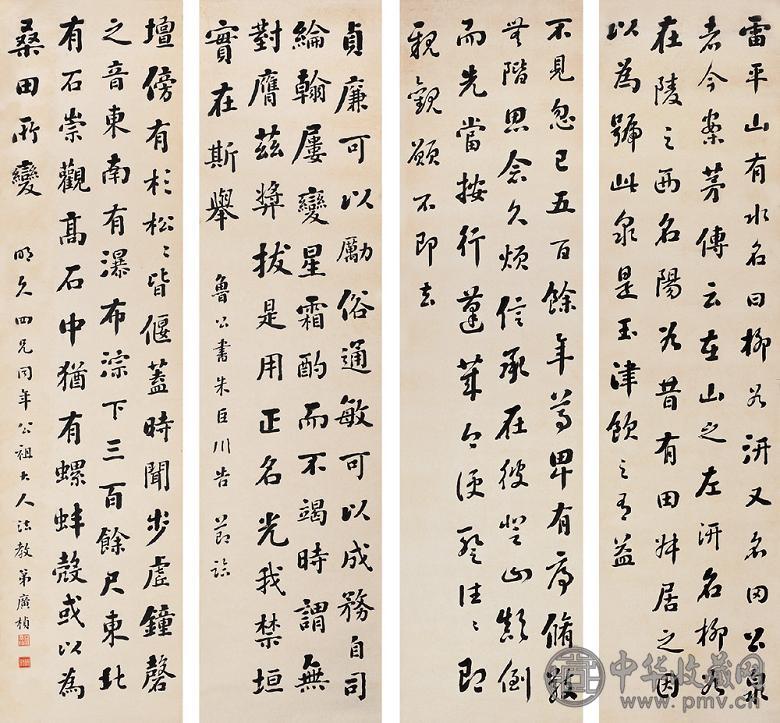 雷平山有水名曰柳谷汧又名田公泉
者今案茅傳云在山之左汧名柳谷
在陵之西名陽谷昔有田叔居之因
以為號此泉是玉津飲之有益
不見忽已五百餘年尊卑有序脩敬
無階思念久煩信承在彼登山顛倒
而先當按行蓬萊今便暫往〻即
親覲願不即去
貞廉可以勵俗通敏可以成務自司
綸翰屢變星霜酌而不竭時謂無
對膺茲獎拔是用正名光我禁垣
實在斯舉 魯公書朱巨川告 節臨
壇傍有杉松〻皆偃蓋時聞步虛鐘磬
之音東南有瀑布淙下三百餘尺東北
有石崇觀高石中猶有螺蚌殼或以為
桑田所變 明久四兄同年公祖大人法教 弟廣楨
中华收藏网
www.pmv.cn